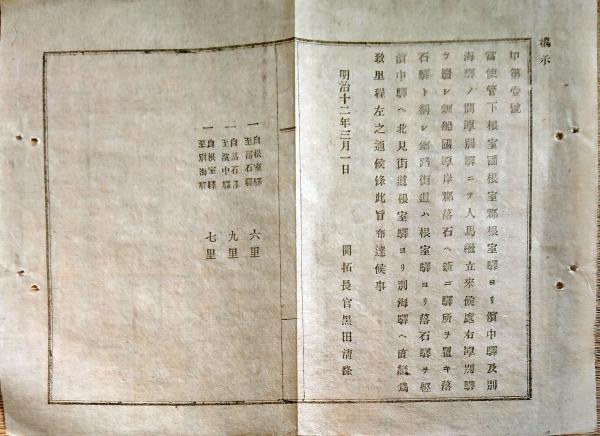 揭示
甲第壹號
當使管下根室國根室郡根室驛ヨリ濵中驛及別
海驛ノ間厚別驛ニヲ人馬繼立來候處右厚別驛
ヲ廢シ釧路國厚岸郡落石ヘ新ニ驛所ヲ置キ落
石驛ト稱シ釧路街道ハ根室驛ヨリ落石驛ヲ經
濵中驛ヘ北見街道根室驛ヨリ別海驛ヘ直繼爲
致里程左之通候條此旨布達候事
明治十二年三月一日
開拓長官黑田清隆
一 自根室驛至落石驛 六里
一 自落石驛至濵中驛 九里
一 自根室驛至別海驛 七里